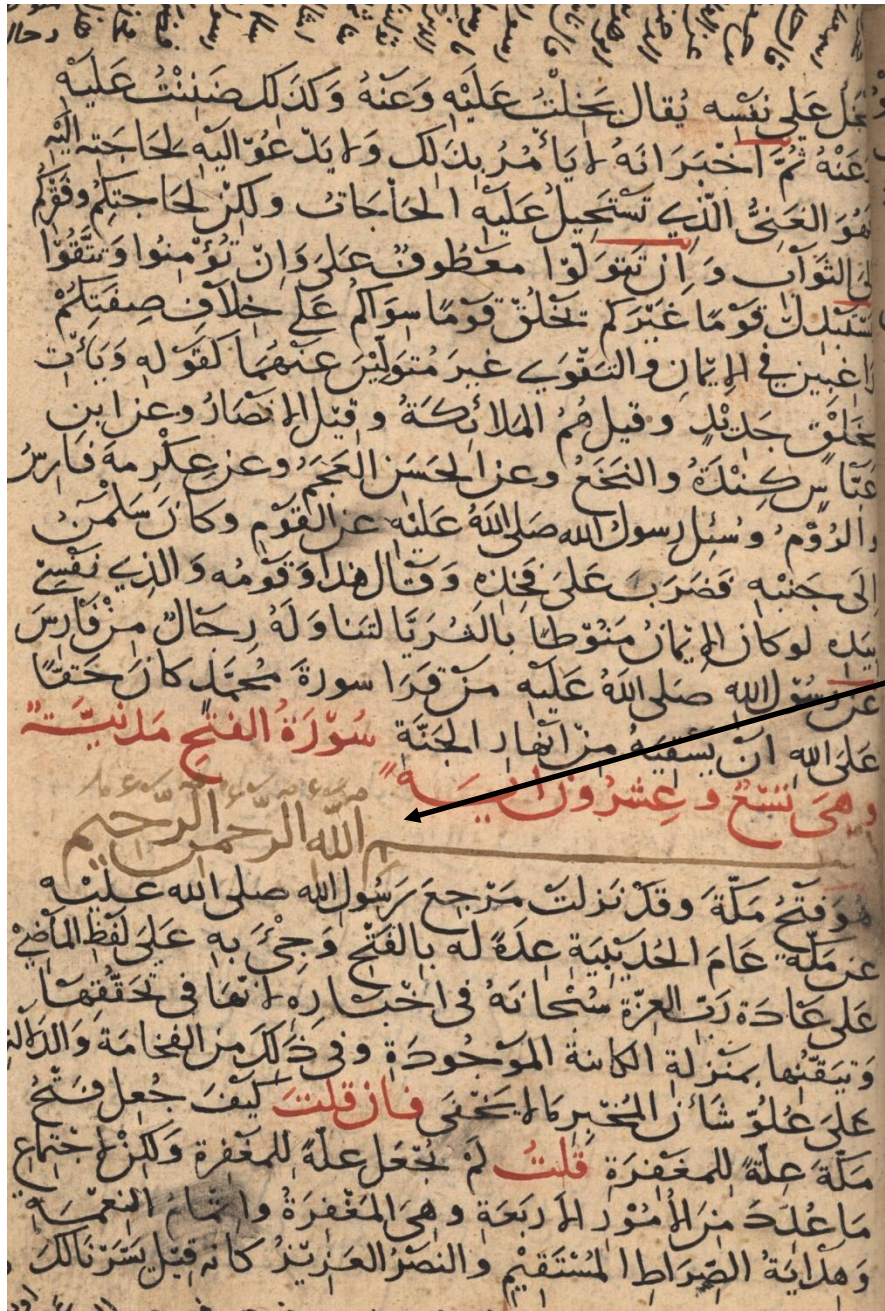 بخل على نفسه يقال بَخِلْتُ عَلَيْهِ وَعَنْهُ وَكَذَلِكَ ضَنِنْتُ عَلَيْهِ
وَعَنْهُ ثُمَّ اَخْبَرَ اَنَهُ لا يَأْمُرُ بِذَلِكَ وَلا يَدْعُوْ اِلَيْهِ لِحَاجَتِهِ اِلَيْهِ
فَهُوَ الغَنِيُّ الَّذِي تَسْتَحِيلُ عَلَيْهِ الحَاجَاتُ ولكن لِحَاجَتِكُمْ وفَقْرِكُمْ
اِلَى الثَوَابِ وَاِنْ تَتَوَلَّوْا مَعْطُوفٌ عَلَى وَاِنْ تُؤْمِنُوا وَتَتَّقُوْا
يَسْتَبْدِلْ قَوْمًا غَيْرَكُم يَخْلُقْ قَوْمًا سِوَاكُمْ عَلَى خِلَافِ صِفَتِكُمْ
رَاغِبِين في الاِيْمَانِ والتَقْوَى غيرَ مُتَوَلِّيْنَ عَنْهُمَا كَقَوْلِهِ وَيَأْتِ
بِخَلْقٍ جَدِيْدٍ وقيل هُمُ المَلائِكَةُ وقِيْلَ الاَنْصَارُ وعن ابن
عَبَّاسٍ كِنْدَةُ والنَخَعُ وعن الحَسَنِ العَجَمُ وعن عِكْرِمَةَ فَارِسُ
والرُوْمُ وسُئِلَ رسولُ الله صَلَى اللهُ عَلَيْهِ عن القَوْمِ وكَانَ سَلْمٰنُ
اِلَى جَنْبِهِ فَضَرَبَ عَلَى فَخِذِهِ وَقَالَ هٰذا وَقَوْمُه وَالذِي نَفْسِيْ
بِيَدِهِ لو كان الاِيْمَانُ مَنُوْطًا بالثُرَيَّا لتَنَاوَلَهُ رِجَالٌ مِنْ فَارِسَ
عَنْ رَسُوْلِ اللهِ صَلَى اللهُ عَلَيْهِ مَنْ قَرَا سورةَ مُحَمَّدٍ كان حَقًّا
عَلَى اللهِ اَنْ يَسْقِيَهُ مِنْ اَنْهَارِ الجَنَّةِ سُوْرَةُ الفَتْحِ مَدَنِيَّةٌ
وهِيَ تِسْعٌ وعِشْرُوْنَ اٰيَةً
بسم اللّٰه الرّحمن الرّحيم
هُوَ فَتْحُ مَكَّةَ وقَدْ نَزَلَتْ مَرْجِعَ رَسُوْلِ الله صلى الله عليه
عن مَكَّةَ عَامَ الحُدَيْبِيَةِ عِدَةً لَه بِالفَتْحِ وَجِيْءَ بِهِ عَلَى لَفْظِ المَاضِيْ
عَلَى عَادَةِ رَبِّ العِزَّةِ سُبْحَانَهُ في اخْبَارِهِ لانَّهَا في تَحَقُّقِهَا
وَتَيَقُّنِها بِمَنْزِلَةِ الكائنةِ المَوْجُودَةِ وفي ذَلِكَ من الفَخَامَةِ وَالدَلالَةِ
عَلَى عُلُوِّ شَأنِ المُخْبِرِ مَا لا يَخْفَى فان قلتَ كَيْفَ جُعِلَ فَتْحُ
مَكَّةَ عِلَّةً للمَغْفِرَةِ قُلْتُ لَمْ يُجْعَلْ عِلَّةً للمَغْفِرَةِ وَلكِنْ لاجْتِمَاعِ
مَا عُدِّدَ مِنَ الاُمُوْرِ الاَرْبَعَةِ وهِيَ المَغْفِرَةُ وَاِتْمَامُ النِعْمَةِ
وَهِدَايَةُ الصِّرَاطِ المُسْتَقِيْمِ والنَصْرُ العَزِيْزُ كانه قِيْلَ يَسَّرْنَا لَكَ